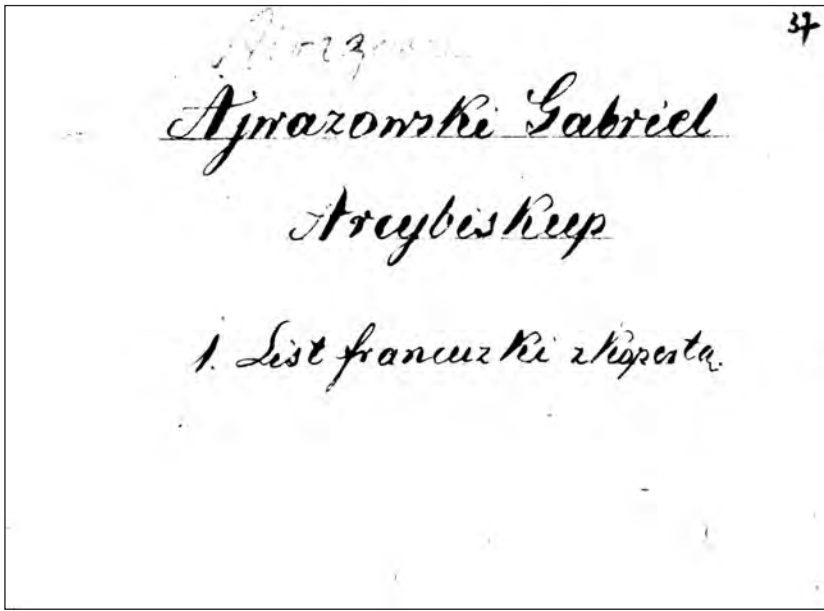 37
Ajwazowski Gabriel
Arcybiskup
1. List francuzki z kopertą.